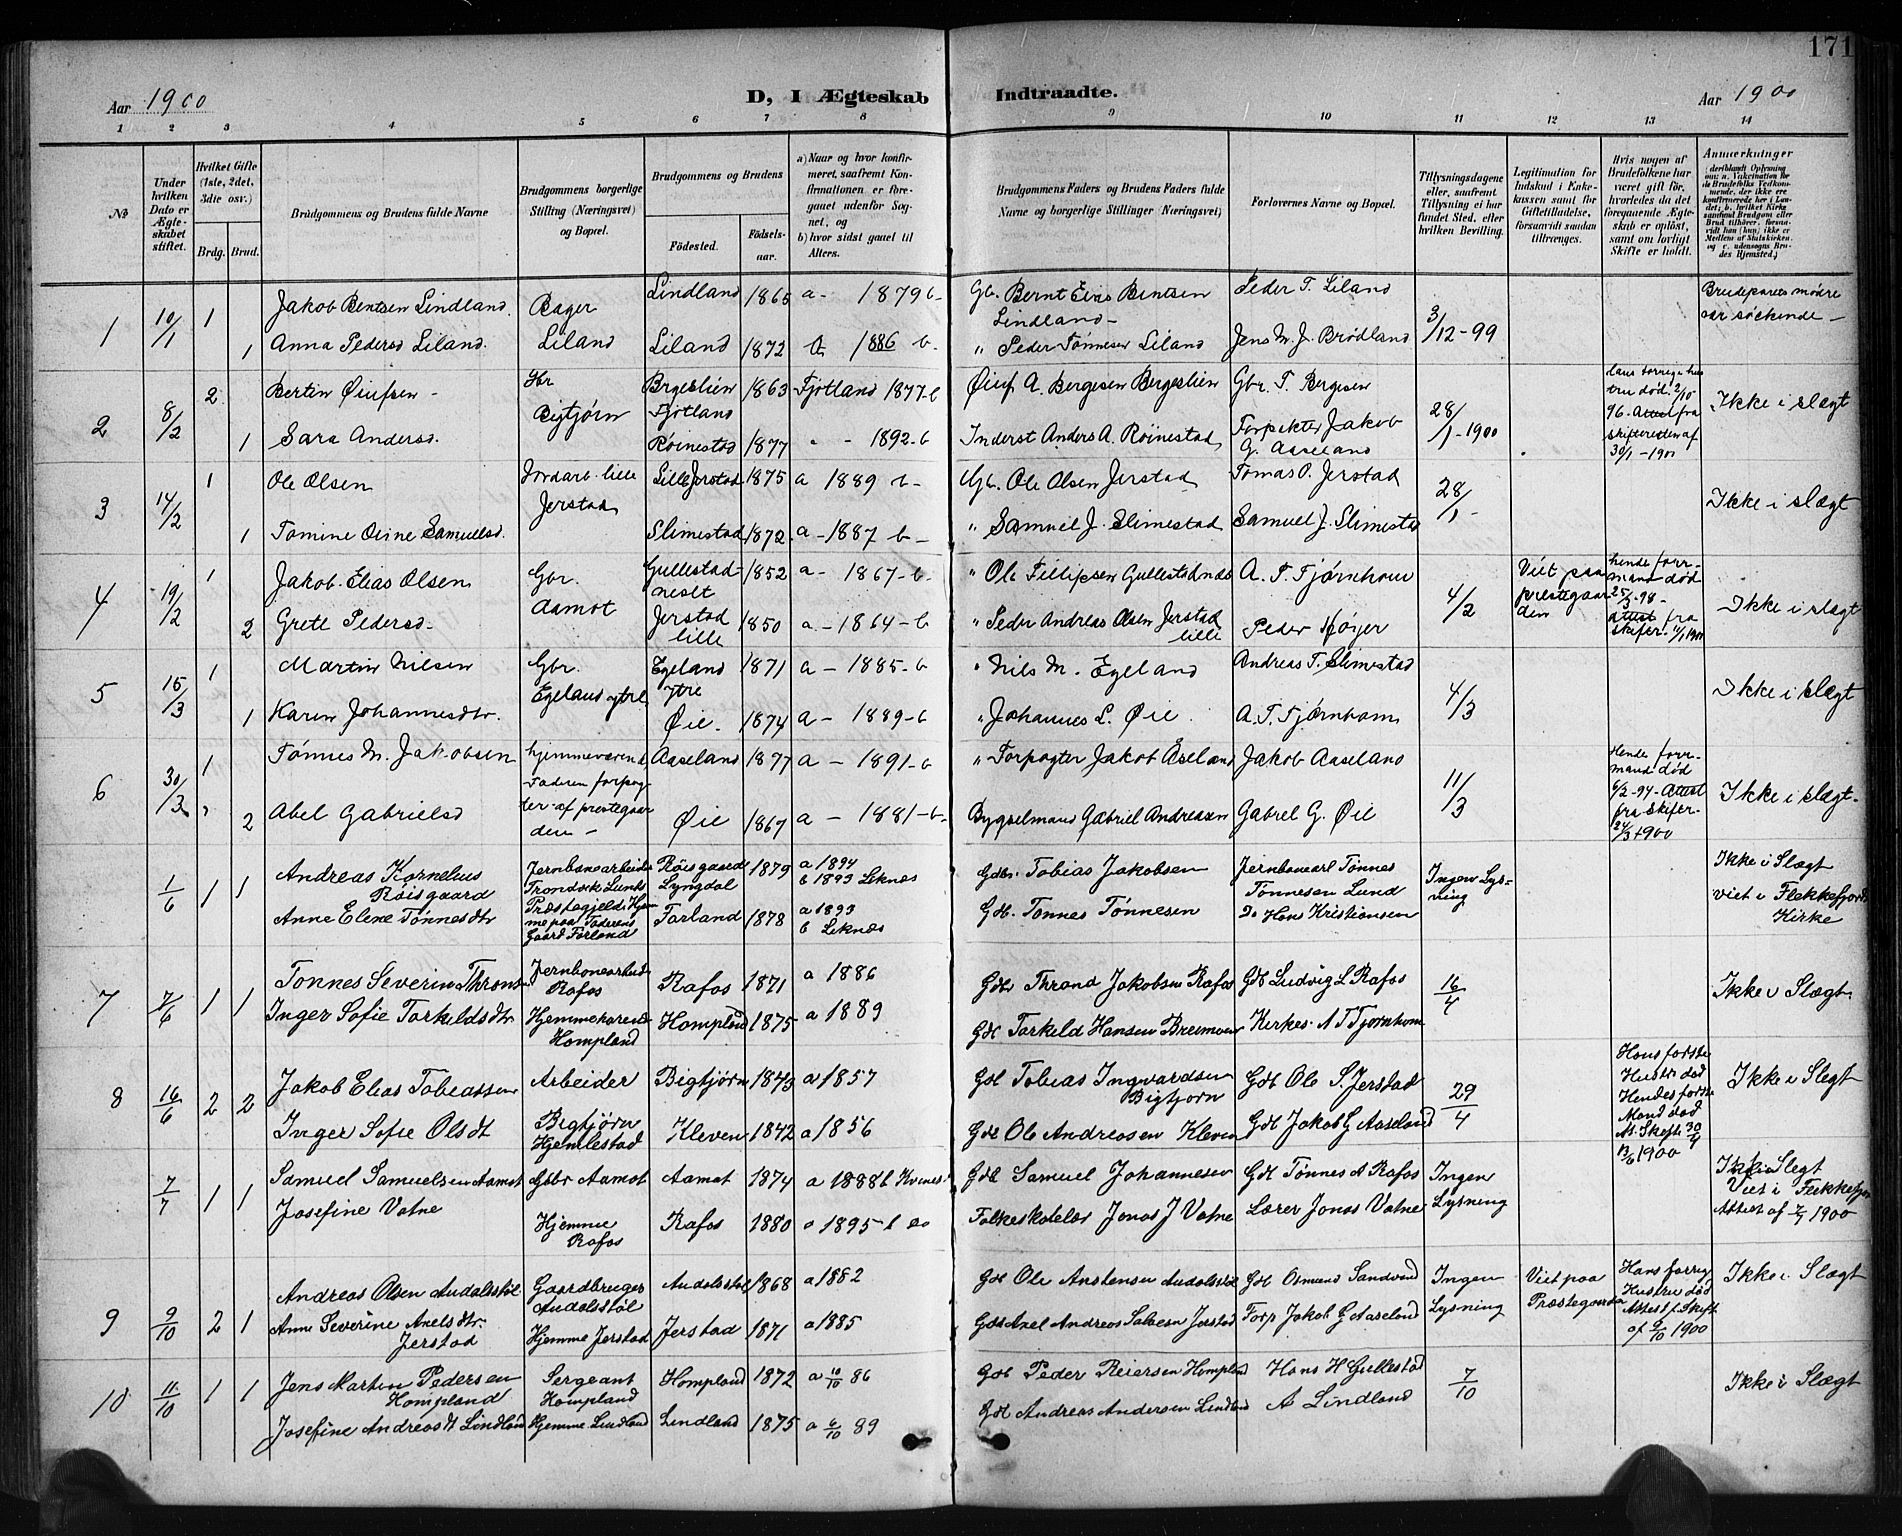 171
Aar 1900
D, I Ægteskab Indtraadte.
Aar 1900
1 2 3 4 5 6 7 8 9 10 11 12 13 14
№
Under hvilken Dato er Ægteskabet stiftet.
Hvilket Gifte (1ste, 2det, 3die osv.)
Brdg. Brud.
Brudgommens og Brudens fulde Navne
Brudgommens borgerlige Stilling (Næringsvei) og Bopæl.
Brudgommens og Brudens
Födested.
Födselsaar.
a) Naar og hvor konfirmeret, saafremt Konfirmationen er foregaaet udenfor Sognet, og
b) hvor sidst gaaet til Alters.
Brudgommens Faders og Brudens Faders fulde Navne og borgerlige Stillinger (Næringsvei)
Forlovernes Navne og Bopæl.
Tillysningsdagene eller, saafremt Tillysning ei har fundet Sted, efter hvilken Bevilling.
Legitimation for Indskud i Enkekassen samt for Giftetilladelse, forsaavidt saadan tiltrænges.
Hvis nogen af Brudefolkene har været gift för, hvorledes da det foregaaende Ægteskab er oplöst, samt om lovligt Skifte er holdt.
Anmærkninger
1 10/1 1 Jakob Bentsen Lindland. Bager Lindland 1865 a- 1879 b- Gb. Bernt Elias Bentsen Lindland- Peder T. Liland 3/12-99 Brudeparets mödre var söskende -
1 Anna Pedersd Liland. Liland Liland 1872 a 1886 b- " Peder Tönnesen Liland Jens M. J. Brödland
2 8/2 2 Bertin Øiufsen - Gbr Bigtjörn Brgeslien Fjotland 1863 Fjotland 1877-b Øiuf A. Bergesen Bergeslien Gbr. T. Bergesen 28/1-1900 Ikke i slægt
hans forrige hustru död 2/10 96. Attest fra skifteretten af 30/1-1900
1 Sara Andersd. Röinestad 1877 - - 1892-b Inderst Anders A. Röinestad Forpakter Jakob G. Aaseland
3 14/2 1 Ole Olsen Jordarb. lille Jerstad Lille Jerstad 1875 a 1889 b- Gb. Ole Olsen Jerstad Tomas O. Jerstad 28/1 - Ikke i slægt
1 Tomine Oline Samuelsd. Slimestad 1872 a-1887 b- " Samuel J. Slimestad Samuel J. Slimestad
4 19/2 1 Jakob Elias Olsen Gbr. Aamot Gullestadneset 1852 a- 1867-b- " Ole Fillipsen Gullestadnes A. T. Fjörnhom 4/2 Viet paa prestegaarden Ikke i slægt
hendes forrmand död 25/3-98- attest fra skifter. 11/1 1900
2 Grete Pedersd. Jerstad lille 1850 a-1864-b " Peder Andreas Olsen Jerstad lille Peder Höyer
5 15/3 1 Martin Nilsen Gbr. Egeland ytre Egeland ytre 1871 a- 1885-b " Nils M. Egeland Andreas T. Slimestad 4/3 Ikke i slægt
1 Karen Johannesdtr. Øie. 1874 a- 1889-b " Johannes L. Øie. A. T. Fjörnhom
6 30/3 1 Tönnes M. Jakobsen hjemmeværende Faderen forpagter af prestegaarden - Aaseland 1877 a- 1891-b " Forpagter Jakob Åseland Jakob Aaseland 11/3 Ikke i slægt-
Hendes forrmand död 6/2-94-Attest fra skifter- 24/3 1900
2 Abel Gabrielsd Øie 1867 a- 1881-b- Bygselmand Gabriel Andreasen Gabrel G. Øie
1/6 1 1 Andreas Kornelius Röisgaard Jernbanearbeider Trondvik Lunds Præstegjeld Röisgaard Lyngdal 1879 a 1894 b 1893 Leknes Gdbr. Tobias Jakobsen Jernbanearb Tönnes Tönnesen Lund Ingen Lysning Ikke i Slægt viet i Flekkefjords Kirke
Anne Elene Tönnesdtr Hjemme paa Faderens Gaard Forland Forland 1878 a 1893 b Leknes Gdb. Tonnes Tönnesen Do Hans Kristiansen
7 7/6 1 1 Tonnes Severin Thronsen Jernbanearbeid Rafos Rafos 1871 a 1886 Gdb Thrond Jakobsen Rafos Gdb Ludvig L Rafos 16/4 Ikke i Slægt
Inger Sofie Torkeldsdtr Hjemmeværende Hompland Hompland 1875 a 1889 Gdb Torkeld Hansen Kirkes. A T Fjörnhom
8 16/6 2 2 Jakob Elias Tobiassen Arbeider Bigtjörn Bigtjörn 1843 a 1857 Gdb Tobias Ingvardsen Bigtjorn Gdb Ole S. Jerstad 29/4 Ikke i Slegt
Hans forste Hustru död Hendes forste Mand död At. Skefte 30/4 13/6 1900
Inger Sofie Olsdt Hjemlestad Kleven 1842 a 1856 Gdb Ole Andreasen Kleven Gdb Jakob G Aaseland
7/7 1 1 Samuel Samuelsen Aamot Gbbr Aamot Aamot 1874 a 1888 b Kvines Gdb Samuel Johannesen Gdb Tönnes A Rafos Ingen Lysning Ikke i Slegt Viet i Flekkefjord Attest af 7/7 1900
Josefine Vatne Hjemme Rafos Rafos 1880 a 1895-b do Folkeskolelær Jonas J Vatne Lærer Jonas Vatne
9 9/10 2 1 Andreas Olsen Audalsstöl Gaardbruger Audalsstöl Audalsstöl 1868 a 1882 Gdb Ole Anstensen Audalsstöl Gdb Osmund Sandvand Ingen Lysning Viet paa Præstegaarden Ikke i Slægt
Hans forrige Hustru död Attest f. Skift af 9/10 1900
Anne Severine Axelsdtr Jerstad Hjemme Jerstad Jerstad 1871 a 1885 Gdb Axel Andreas Salvesen Jerstad Forp Jakob G Aaseland
10 11/10 1 1 Jens Martin Pedersen Hompland Sergeant Hompland Hompland 1872 a 10/10 86 Gdb Peder Reiersen Hompland Hans H Gullestad 7/10 Ikke i Slægt
Josefine Andreasdt Lindland Hjemme Lindland Lindland 1875 a 6/10 89 Gdb Andreas Andersen Lindland A Lindland